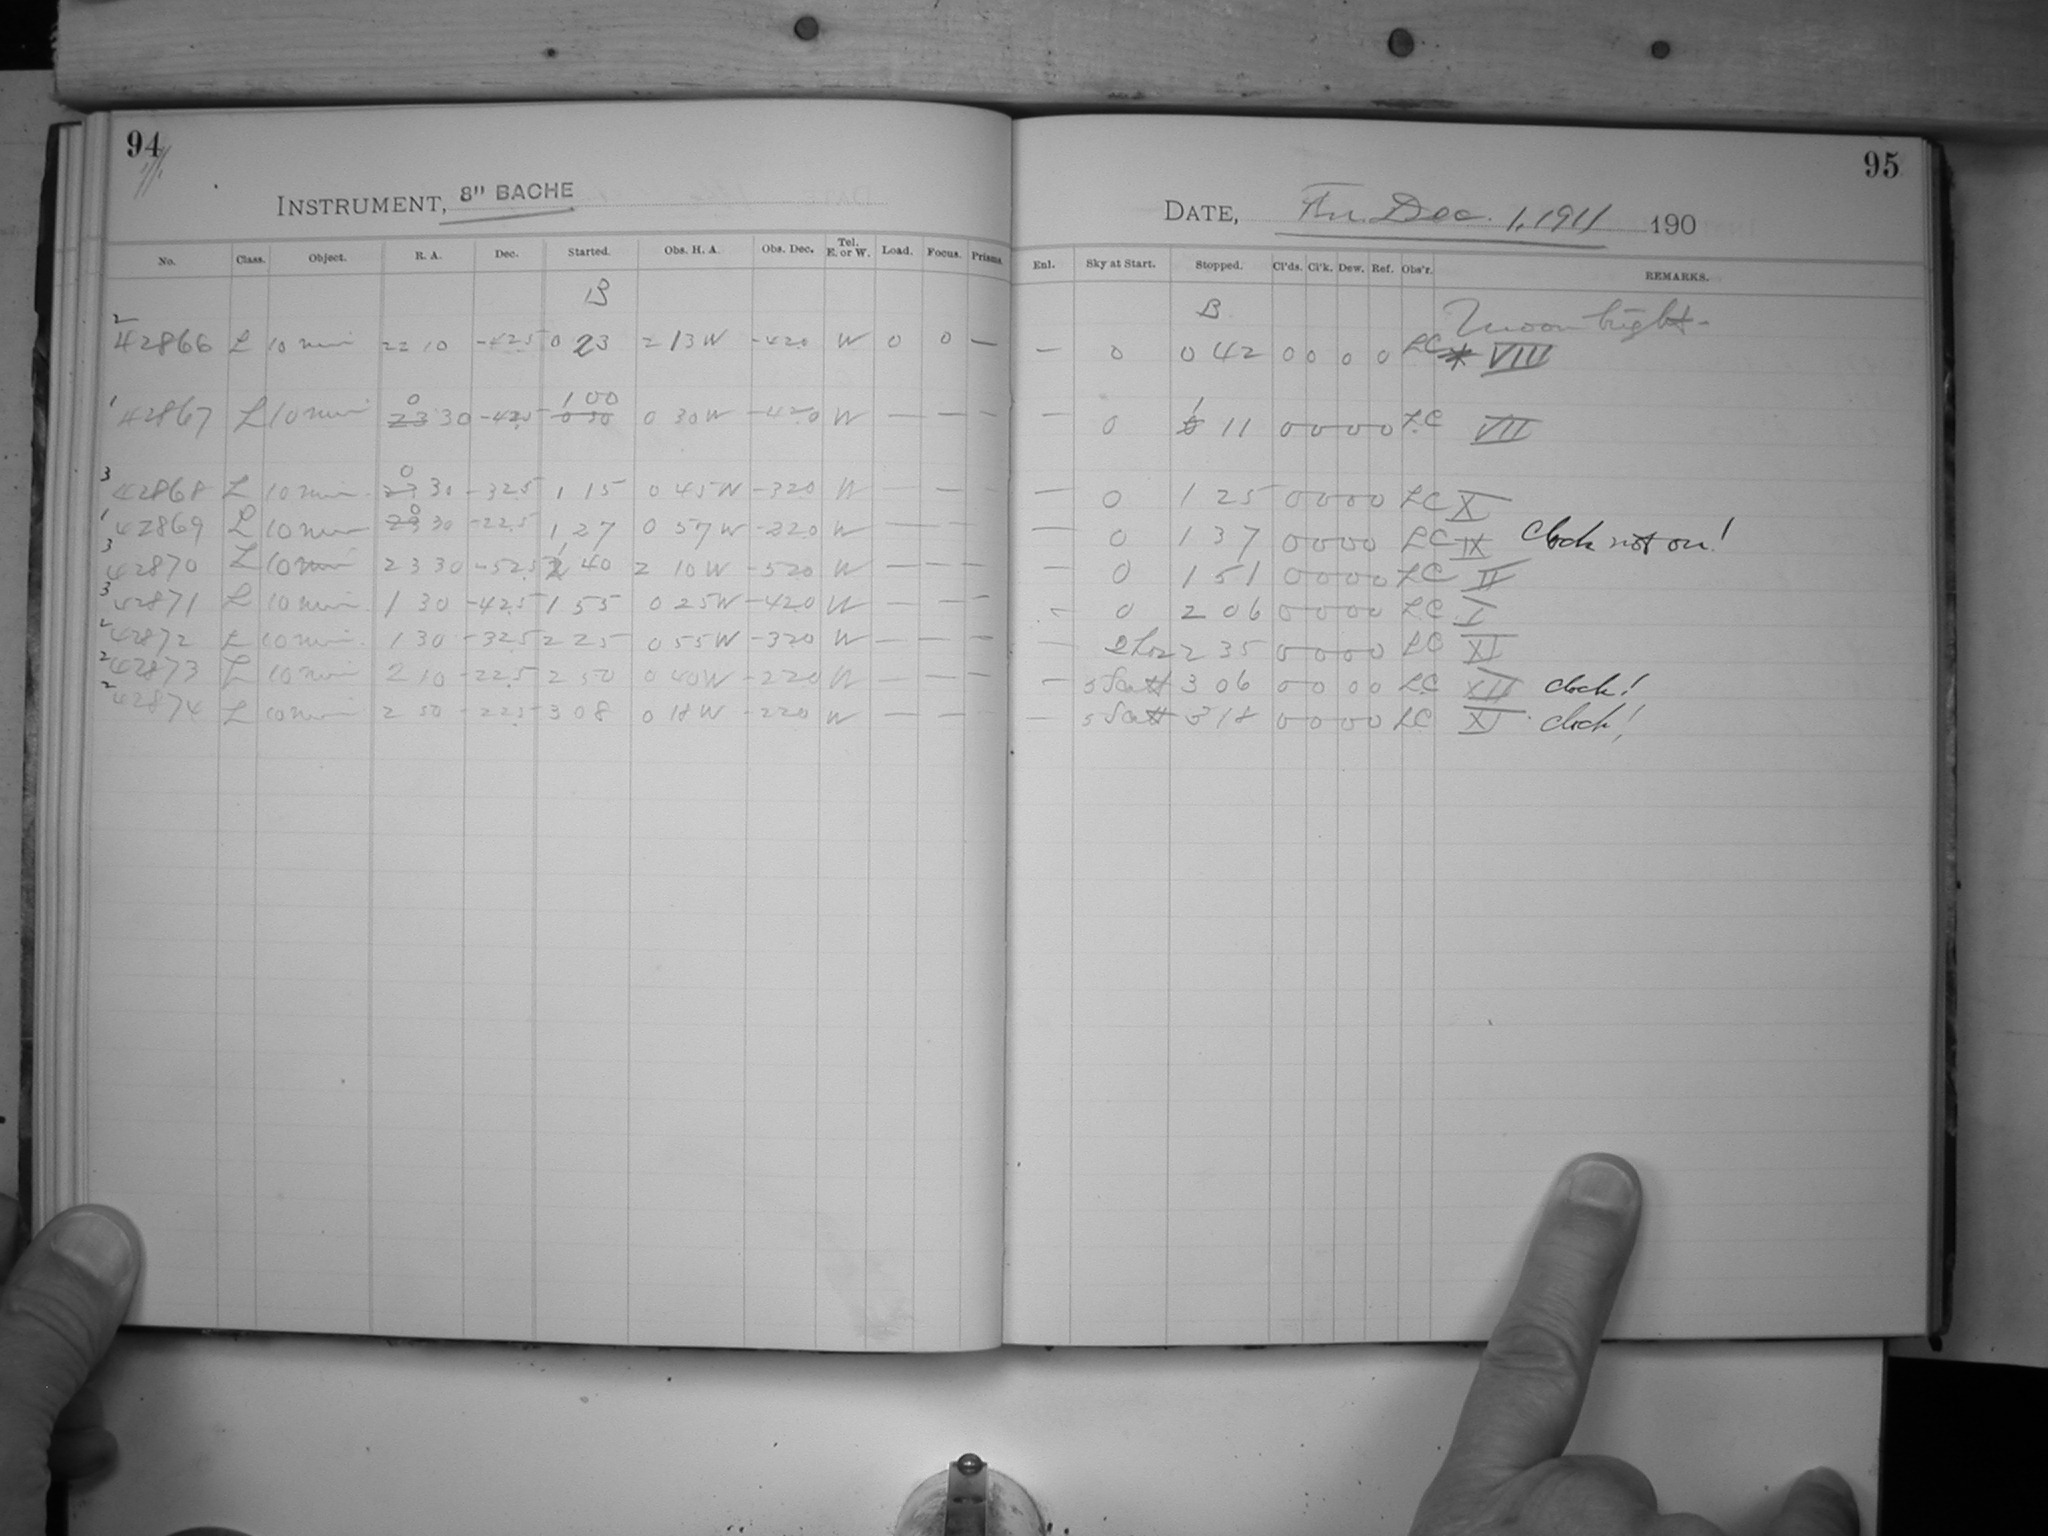 94
INSTRUMENT, 8" BACHE
No. Class. Object. R. A. Dec. Started. Obs. H. A. Obs. Dec. Tel. E. or W. Load. Focus. Prisms.
B
2 42866 L 10 min 22 10 -42.5 0 23 2 13 W -42.0 W 0 0 —
0 1 00
1 42867 L 10 min 23 30 -42.5 0 30 0 30 W -42.0 W — — —
0
3 42868 L 10 min. 23 30 -32.5 1 15 0 45 W -32.0 W — — —
0
1 42869 L 10 min 23 30 -22.5 1 27 0 57 W -22.0 W — — —
3 42870 L 10 min 23 30 -52.5 1 40 2 10 W -52.0 W — — —
3 42871 L 10 min. 1 30 -42.5 1 55 0 25 W -42.0 W — — —
2 42872 L 10 min. 1 30 -32.5 2 25 0 55 W -32.0 W — — —
2 42873 L 10 min 2 10 -22.5 2 50 0 40 W -22.0 W — — —
2 42874 L 10 min 2 50 -22.5 3 08 0 18 W -22.0 W — — —
95
DATE, Fri. Dec. 1, 1911 190
Enl. Sky at Start. Stopped. Cl'ds. Cl'k. Dew. Ref. Obs'r. REMARKS.
B Moon bright-
— 0 0 42 0 0 0 0 LC * VIII
— 0 1 11 0 0 0 0 LC VII
— 0 1 25 0 0 0 0 LC X
— 0 1 37 0 0 0 0 LC IX Clock not on!
— 0 1 51 0 0 0 0 LC II
— 0 2 06 0 0 0 0 LC I
— 2 35 0 0 0 0 LC XI
— s Scatt 3 06 0 0 0 0 LC XII clock!
— s Scatt 3 18 0 0 0 0 LC XI clock!